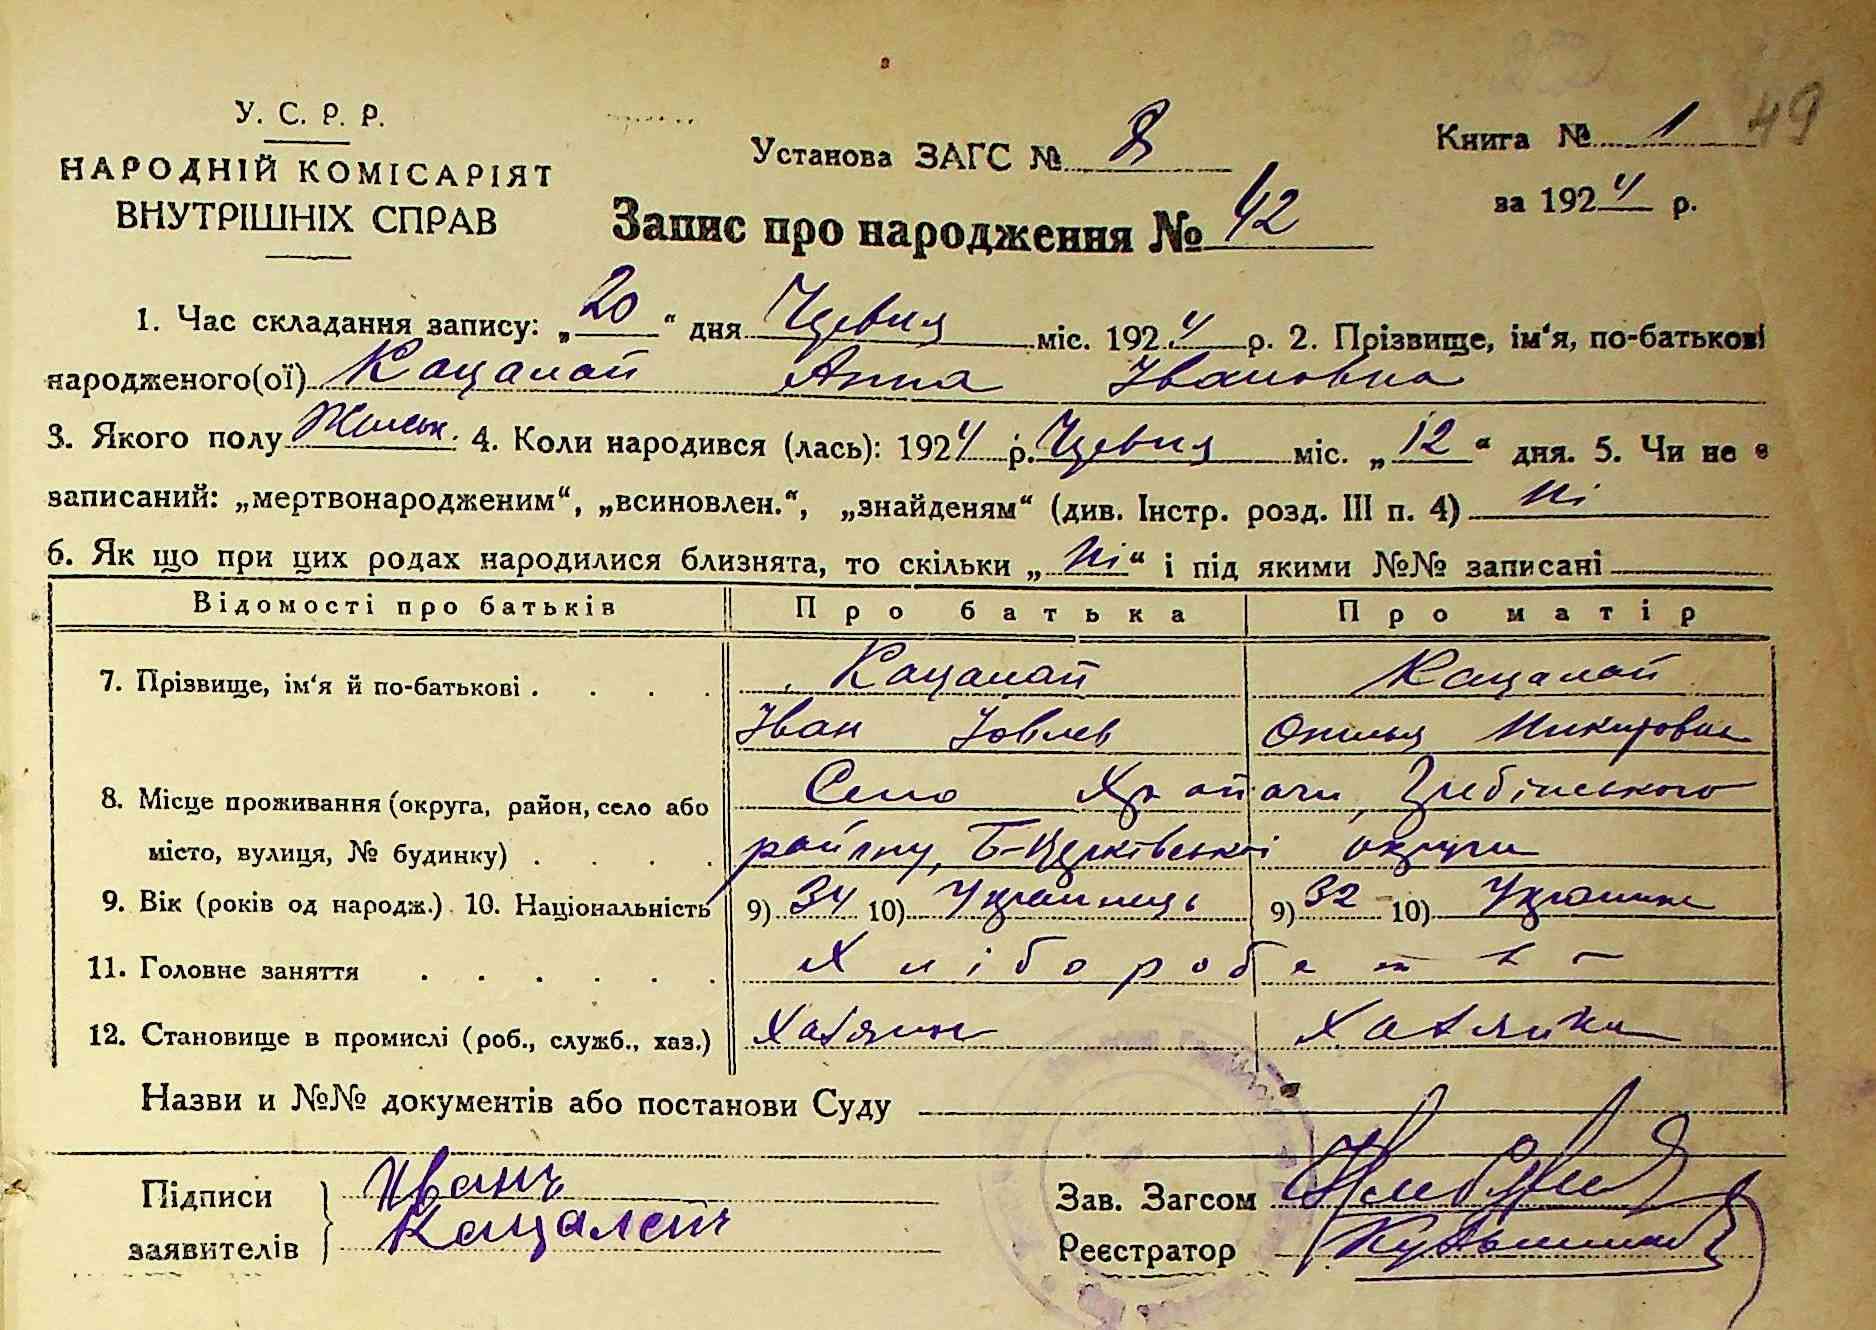 49
У. С. Р. Р.
НАРОДНІЙ КОМІСАРІЯТ
ВНУТРІШНІХ СПРАВ
Установа ЗАГС № 8
Книга № 1
за 1924 р.
Запис про народження № 42
1. Час складання запису: „20“ дня Червня міс. 1924 р. 2. Прізвище, ім‘я, по-батькові
народженого(ої) Кацалап Анна Івановна
3. Якого полу Жіноч. 4. Коли народився (лась): 1924 р. Червня міс. „12“ дня. 5. Чи не є
записаний: „мертвонародженим“, „всиновлен.“, „знайденям“ (див. Інстр. розд. III п. 4) Ні
6. Як що при цих родах народилися близнята, то скільки „Ні“ і під якими №№ записані
Відомості про батьків Про батька Про матір
7. Прізвище, ім‘я й по-батькові . . . . Кацалап Кацалап
Іван Никитовна
8. Місце проживання (округа, район, село або Село Храпачи,
місто, вулиця, № будинку) . . . . району, Б-Церківської округи
9. Вік (років од народж.). 10. Національність 9) 34 10) Українець 9) 32 10) Українка
11. Головне заняття . . . . . . Хліборобство
12. Становище в промислі (роб., служб., хаз.) Хазяин Хазяйка
Назви и №№ документів або постанови Суду
Підписи Іванъ
заявителів Кацалапъ
Зав. Загсом
Реєстратор